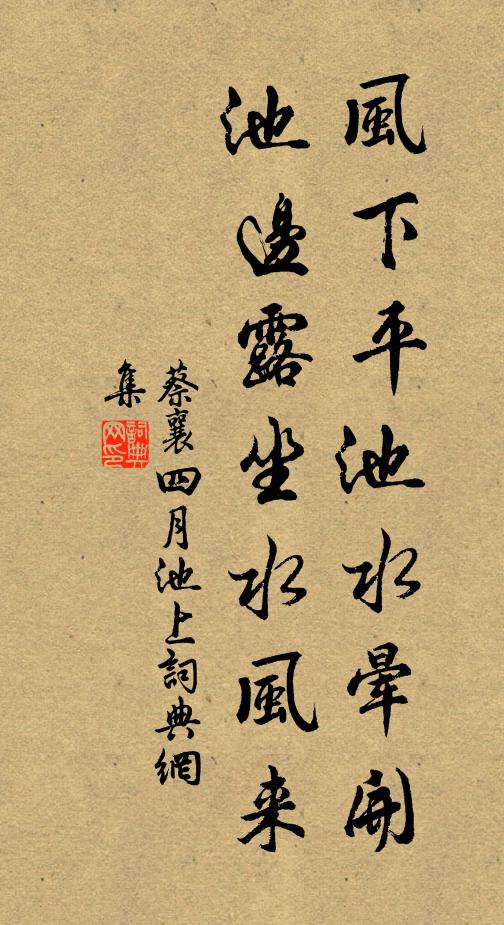 風下平池水暈開
池邊露坐水風来
蔡襄四月池上詞典網
集
詞典網印